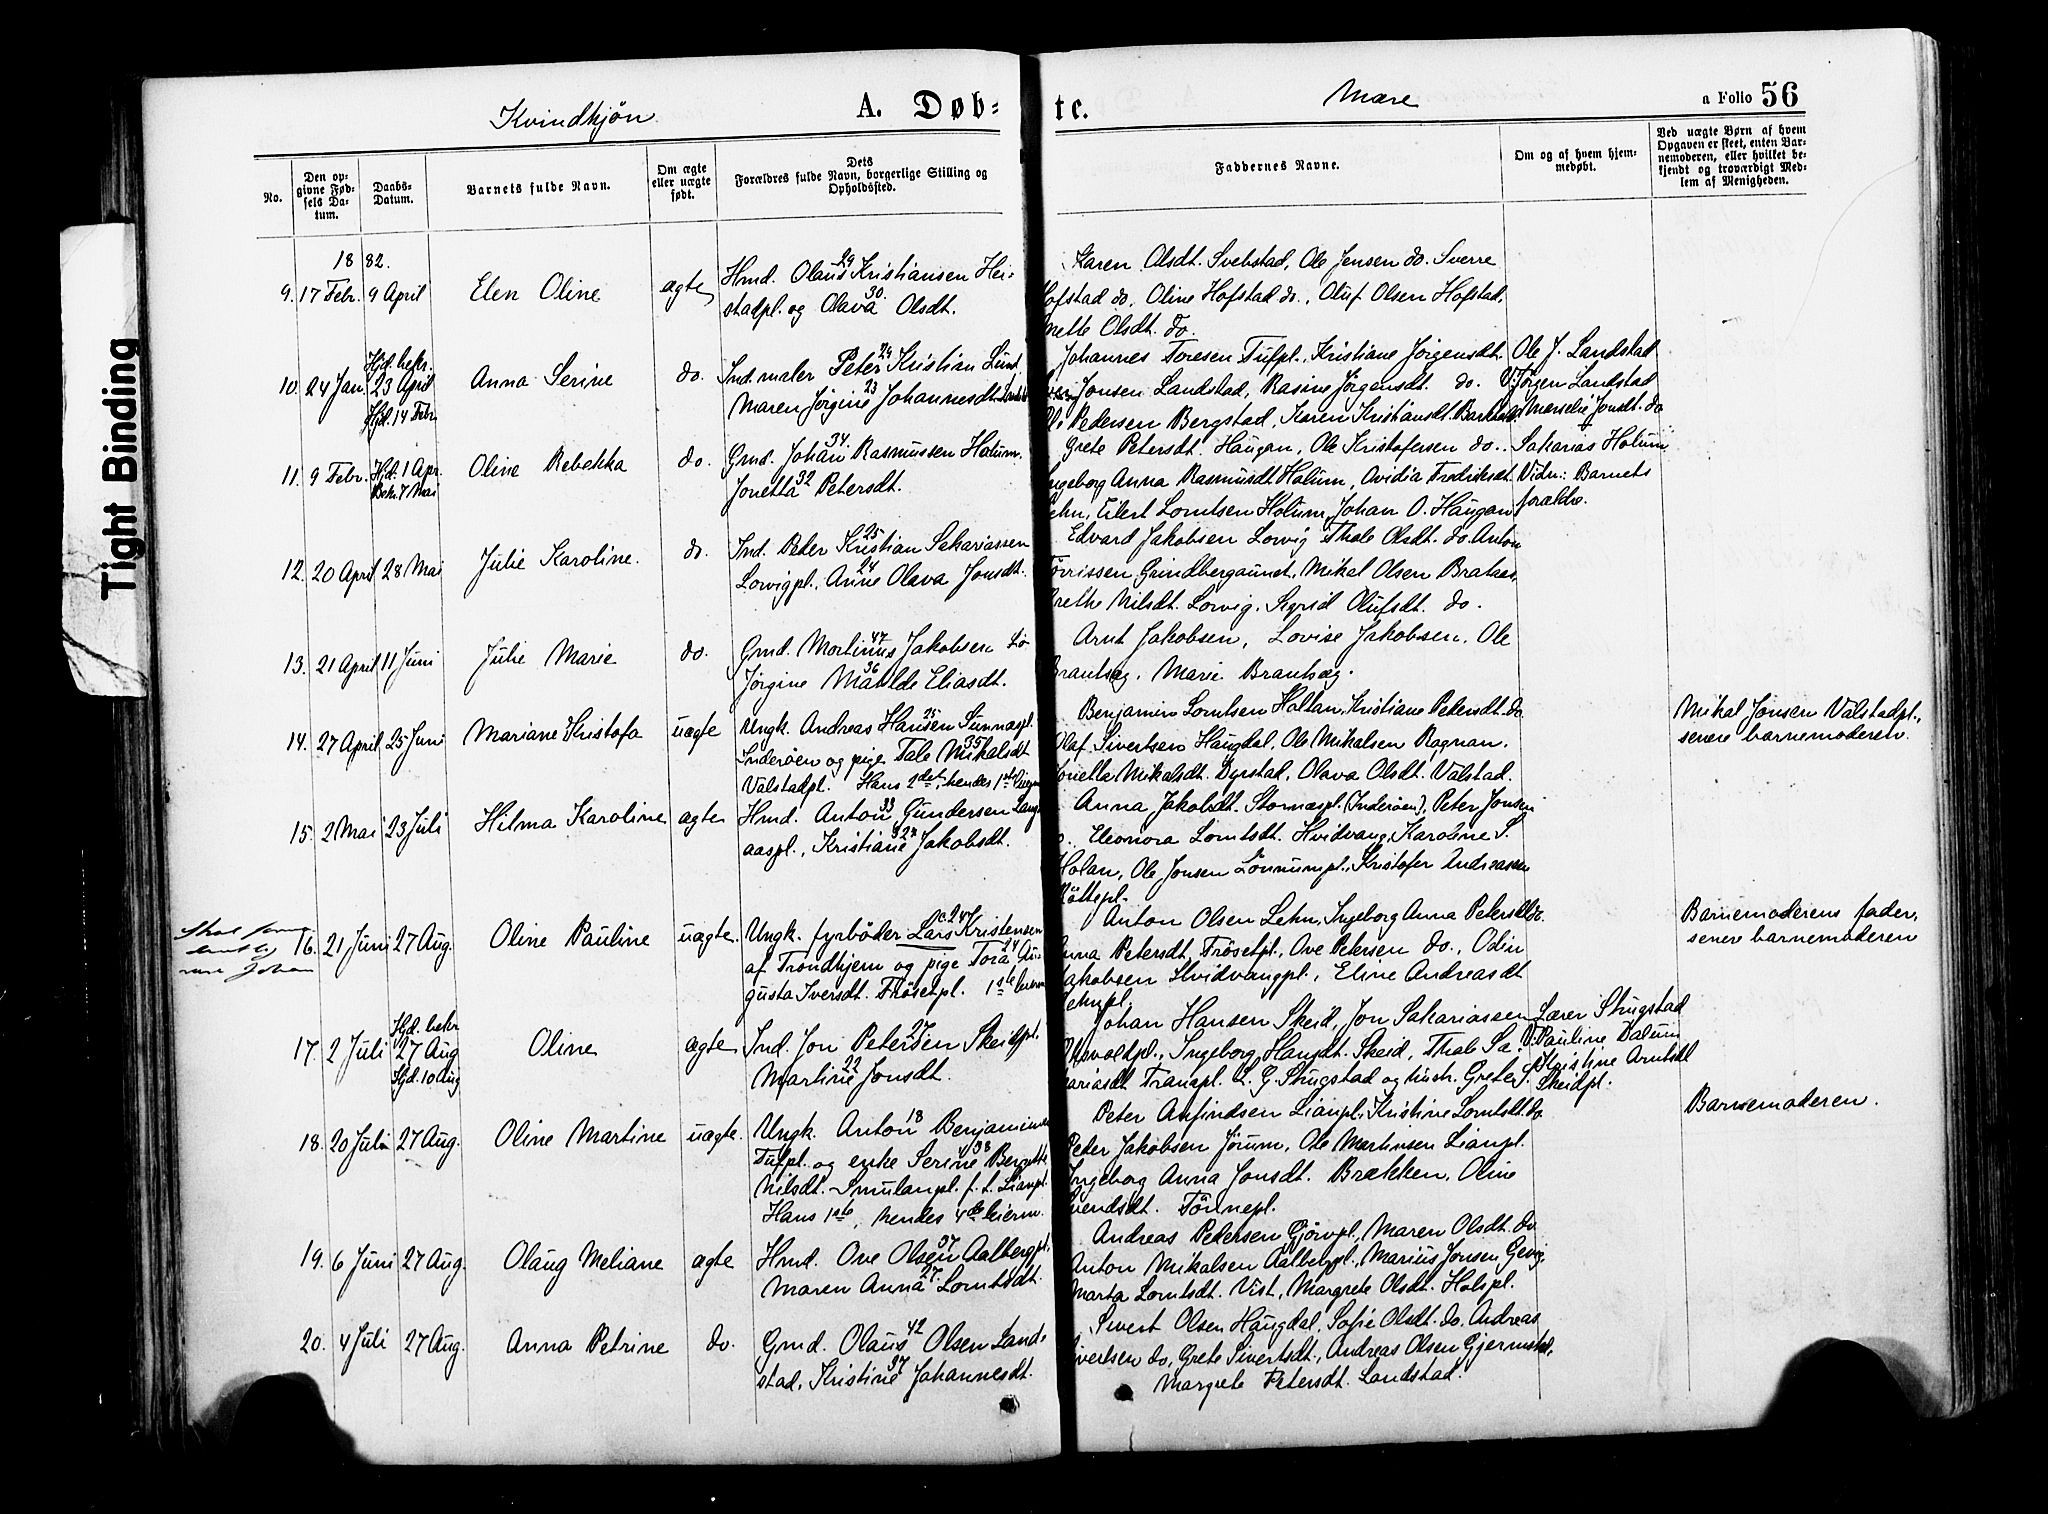 Tight Binding
Kvindkjøn
A. Døb-
te.
Mære
a Folio 56
No.
Den op-
givne Fød-
sels Da-
tum.
Daabs-
Datum.
Barnets fulde Navn.
Om ægte
eller uægte
født.
Dets
Forældres fulde Navn, borgerlige Stilling og
Opholdssted.
Faddernes Navne.
Om og af hvem hjem-
medøbt.
Ved uægte Børn af hvem
Opgaven er skeet, enten Bar-
nemoderen, eller hvilket be-
kjendt og troværdigt Med-
lem af Menigheden.
1882.
9. 17 Febr. 9 April Elen Oline ægte
Hmd. Olaus Kristiansen Hei- 29
stadpl. og Olava Olsdt. 30.
Karen Olsdt. Svebstad, Ole Jensen do. Sverre
Hofstad do, Oline Hofstad do., Oluf Olsen Hofstad,
nette Olsdt. do.
10. 24 Jan.
Hjd. bekr.
23 April
Hjd. 14 Febr
Anna Serine do.
Ind. maler Peter Kristian Lund, 29
Maren Jørgine Johannesdt. 23
Johannes Toresen Tufpl., Kristiane Jørgensdt.
Jonsen Landstad, Rasine Jørgensdt. do.
Pedersen Bergstad, Karen Kristiansdt.
Ole J. Landstad
V: Jørgen Landstad
Marselie Jonsdt. do
11. 9 Febr.
Hjd. 1 Apr.
Bekr. 7 Mai
Oline Rebekka do.
Gmd. Johan Rasmussen Holum. 34.
Jonetta Petersdt. 32
Grete Petersdt. Haugan, Ole Kristofersen do..
Ingeborg Anna Rasmusdt. Holum, Ovidia Fredriksdt.
Lehn, Eilert Lorntsen Holum, Johan O. Haugan
Sakarias Holum
Vidn: Barnets
forældre.
12. 20 April 28 Mai Julie Karoline. do.
Ind. Peter Kristian Sakariassen 25
Lorvigpl., Anne Olava Jonsdt. 24
Edvard Jakobsen Lorvig Thale Olsdt. do. Anton
Torrissen Grindbergaunet, Mikal Olsen Brataas,
Grethe Nilsdt. Lorvig. Sigrid Olufsdt. do.
13. 21 April 11 Juni Julie Marie do.
Gmd. Martinus Jakobsen Lø 47
Jørgine Matilde Eliasdt. 36
Arnt Jakobsen, Lovise Jakobsen, Ole
Brautsæg. Marie Brautsæg.
14. 27 April 25 Juni Mariane Kristofa uægte
Ungk. Andreas Hansen Sunnaspl. 25
Inderøen og pige Tale Mikalsdt 35
Valstadpl. Hans 2det, hendes 1ste
Benjamin Lorntsen Holtan, Kristiane Petersdt. do.
Olaf Sivertsen Haugdal, Ole Mikalsen Rognan.
Jonetta Mikalsdt. Dyrstad, Olava Olsdt. Valstad.
Mikal Jonsen Valstadpl.,
senere barnemoderen.
15. 2 Mai 23 Juli Hilma Karoline ægte
Hmd. Anton Gundersen Lang- 33
aaspl., Kristiane Jakobsdt. 32
Anna Jakobsdt. Stornæspl. (Inderøen), Peter Jonsen
do., Eleonora Lorntsdt. Hvidvang, Karoline S.
Holan, Ole Jonsen Lønnumpl., Kristofer Andreassen
16. 21 Juni 27 Aug. Oline Pauline uægte.
Ungk. fyrbøder Lars Kristensen c. 24
af Trondhjem og pige Tora Au- 24
gusta Iversdt. Frösetpl. 1ste leierm
Anton Olsen Lehn, Ingeborg Anna Petersdt. do.
Anna Petersdt, Frösetpl., Ove Petersen do., Odin
Jakobsen Hvidvangpl., Eline Andreasdt
Lehnpl.
Barnemoderens fader,
senere barnemoderen
17. 2 Juli
Hjd. bekr
27 Aug
Hjd. 10 Aug
Oline ægte
Ind. Jon Petersen Skeidpl. 27
Martine Jonsdt. 22
Johan Hansen Skeid, Jon Sakariassen
Ingeborg Hansdt. Skeid, Thale Sa-
kariasdt. Tranapl. L. G. Strugstad og hustr. Grete S.
Lærer Strugstad
V: Pauline Dalum
Kristine Arntsdt
Skeidpl.
18. 20 Juli 27 Aug. Oline Martine uægte.
Ungk. Anton Benjaminsen 18
Tufpl. og enke Serine Bergitte 38
Nilsdt. Smulanpl. f. t. Lianpl.
Hans 1ste, hendes 4de leierm.
Peter Anfindsen Lianpl., Kristine Lorntsdt. do.
Peter Jakobsen Jørum, Ole Martinsen Lianpl.
Ingeborg Anna Jonsdt. Brækken, Oline
Svendsdt. Tönnepl.
Barnemoderen.
19. 6 Juni 27 Aug. Olaug Meliane ægte
Hmd. Ove Olsen Aalbergpl. 37
Maren Anna Lorntsdt. 27.
Andreas Petersen Gjørvpl., Maren Olsdt. do.
Anton Mikalsen Aalbergpl., Marius Jonsen Gevig,
Marta Lorntsdt. Vist, Margrete Olsdt. Holspl.
20. 4 Juli 27 Aug. Anna Petrine do.
Gmd. Olaus Olsen Land- 42
stad, Kristine Johannesdt. 37
Sivert Olsen Haugdal, Sofie Olsdt. do, Andreas
Sivertsen do, Grete Sivertsdt., Andreas Olsen Gjermstad,
Margrete Petersdt. Landstad.